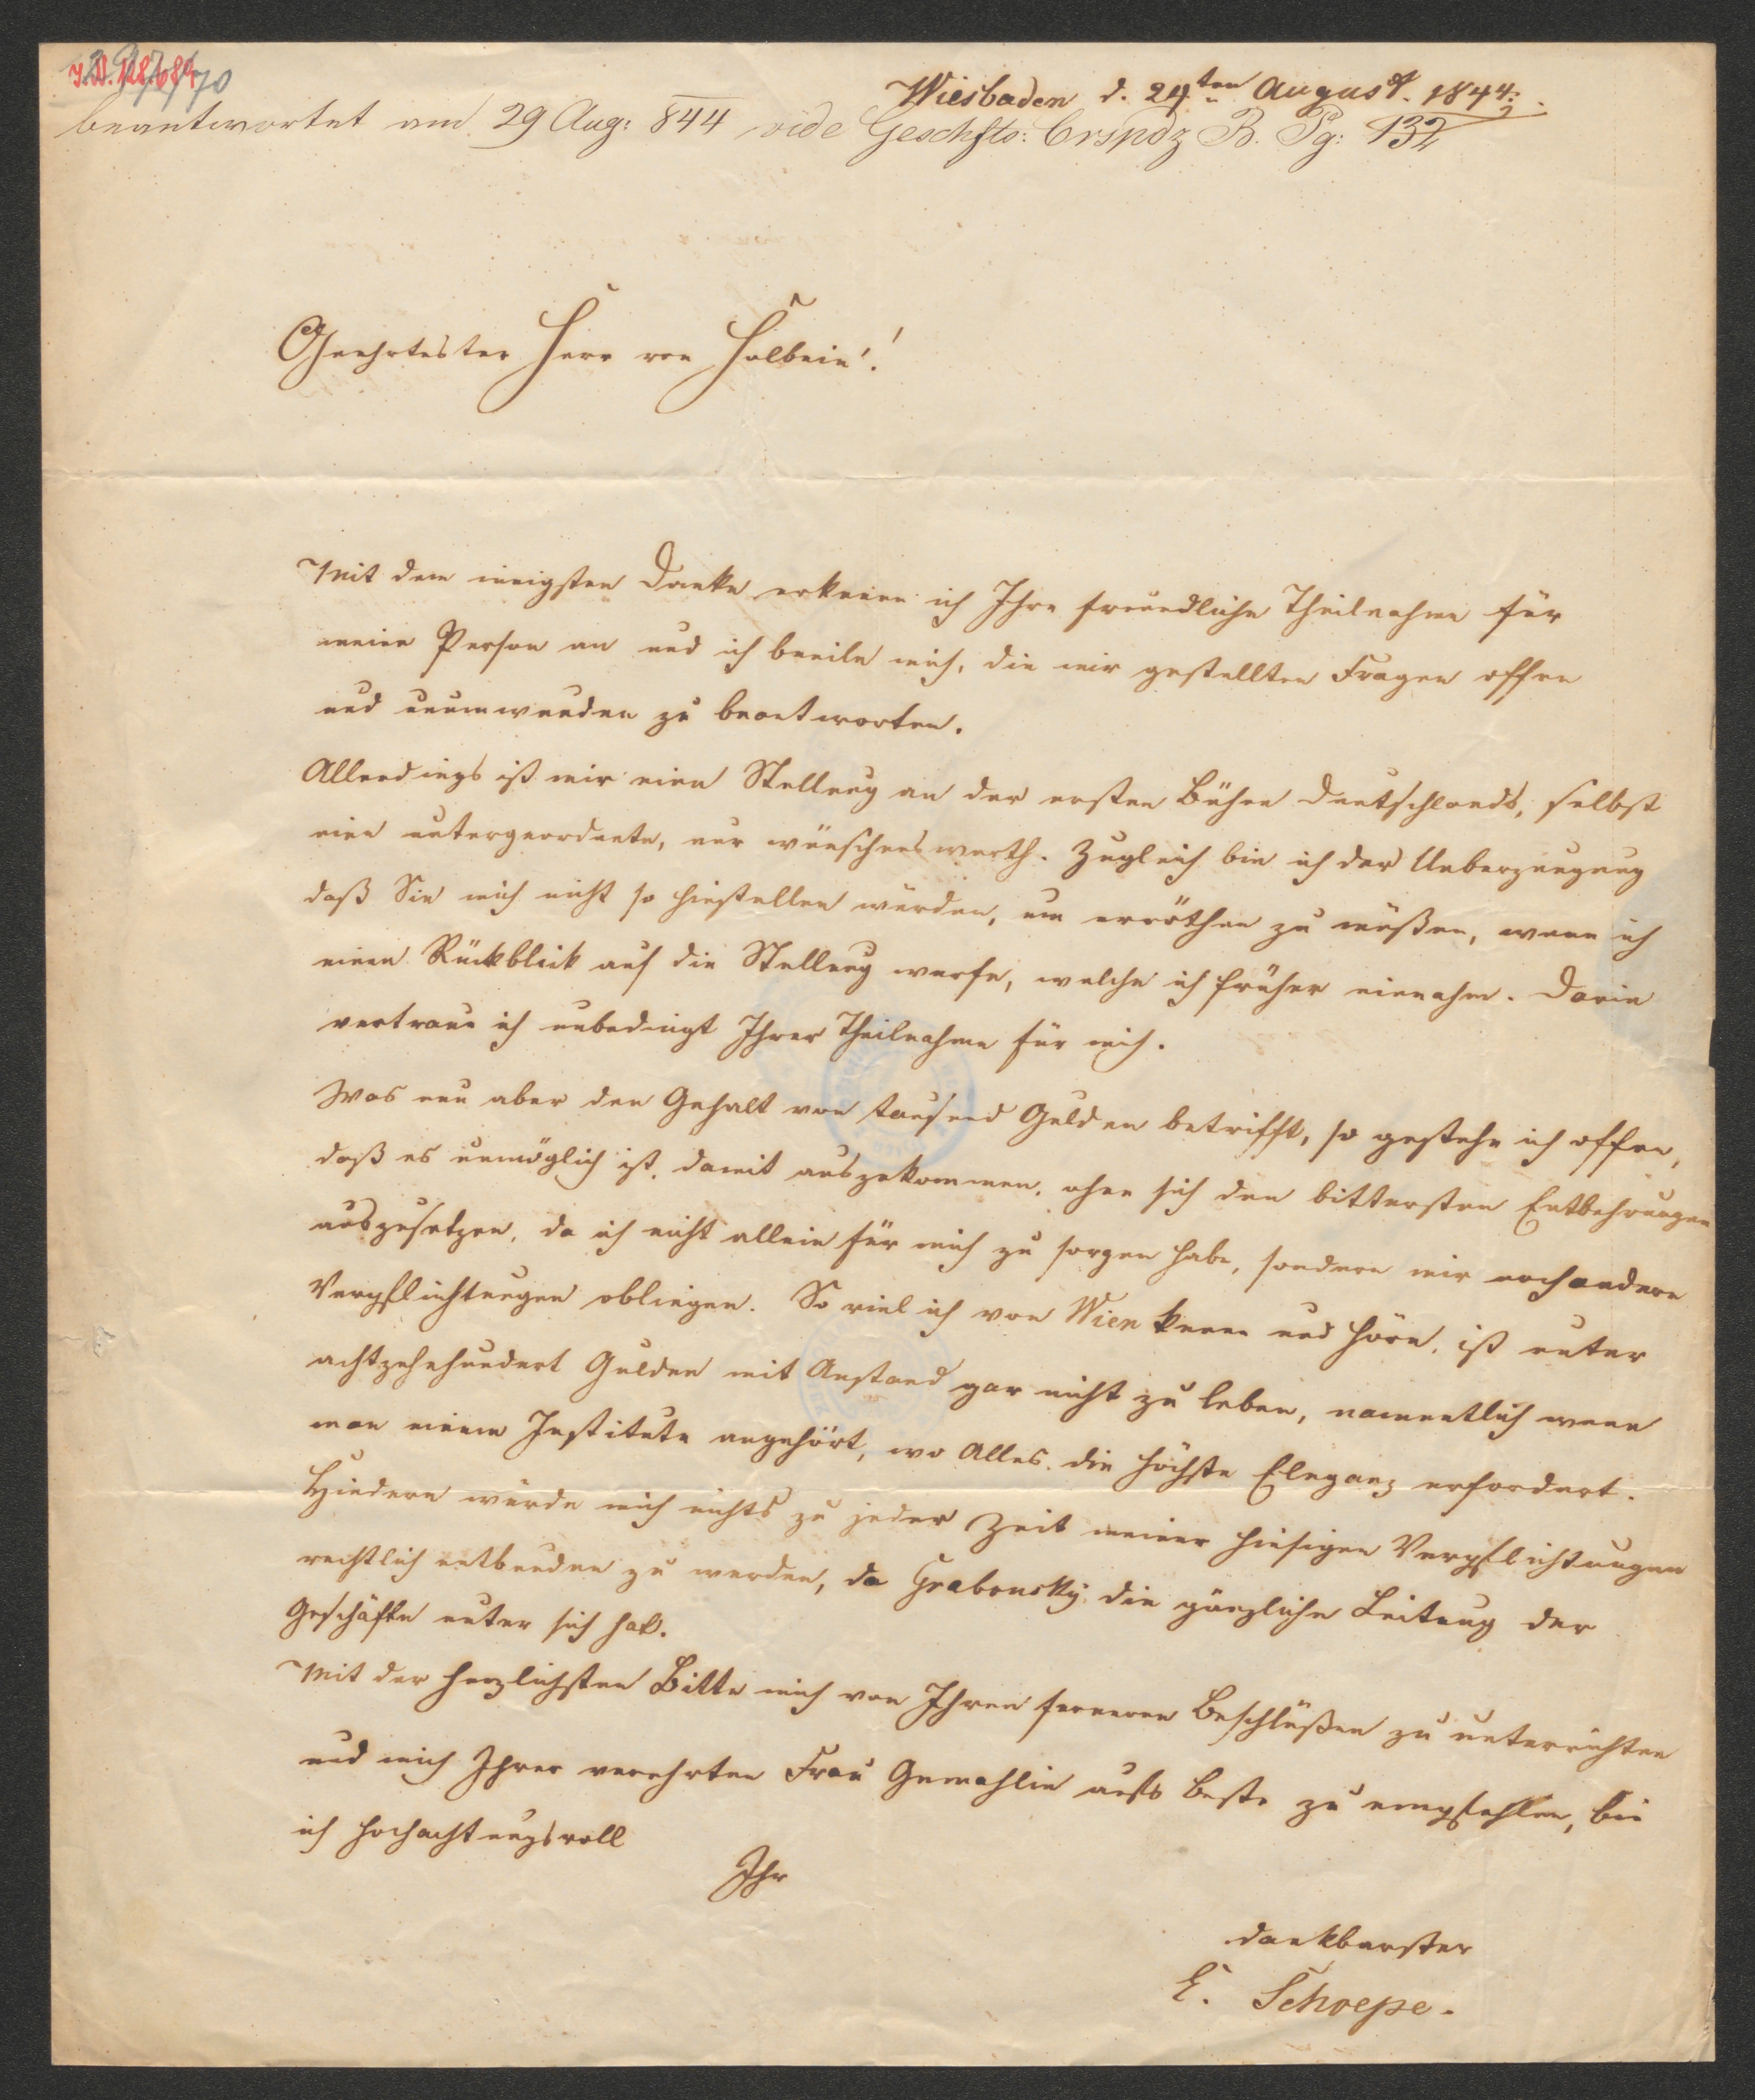 I.N. 128.684
Wiesbaden d. 24ten August. 1844.
beantwortet am 29 Aug: 844 vide Geschfts: Crspdz B. Pg: 132
Geehrtester Herr von Holbein!
Mit dem innigsten Danke erkenne ich Ihre freundliche Theilnahme für
meine Person an und ich beeile mich, die mir gestellten Fragen offen
und unumwunden zu beantworten.
Allerdings ist mir eine Stellung an der ersten Bühne Deutschlands, selbst
eine untergeordnete, nur wünschenswerth. Zugleich bin ich der Ueberzeugung
daß Sie mich nicht so hinstellen würden, um erröthen zu müßen, wenn ich
einen Rückblick auf die Stellung werfe, welche ich früher einnahm. Darin
vertraue ich unbedingt Ihrer Theilnahme für mich.
Was nun aber den Gehalt von tausend Gulden betrifft, so gestehe ich offen,
daß es unmöglich ist, damit auszukommen, ohne sich den bittersten Entbehrungen
auszusetzen, da ich nicht allein für mich zu sorgen habe, sondern mir noch andere
Verpflichtungen obliegen. So viel ich von Wien kenne und höre, ist unter
achtzehnhundert Gulden mit Anstand gar nicht zu leben, namentlich wenn
man einem Institute angehört, wo Alles die höchste Eleganz erfordert.
Hindern würde mich nichts zu jeder Zeit meiner hiesigen Verpflichtungen
rechtlich entbunden zu werden, da Grabowsky die gänzliche Leitung der
Geschäfte unter sich hat.
Mit der herzlichsten Bitte mich von Ihren ferneren Beschlüßen zu unterrichten
und mich Ihrer verehrten Frau Gemahlin aufs beste zu empfehlen, bin
ich hochachtungsvoll
Ihr
dankbarster
E. Schoepe.